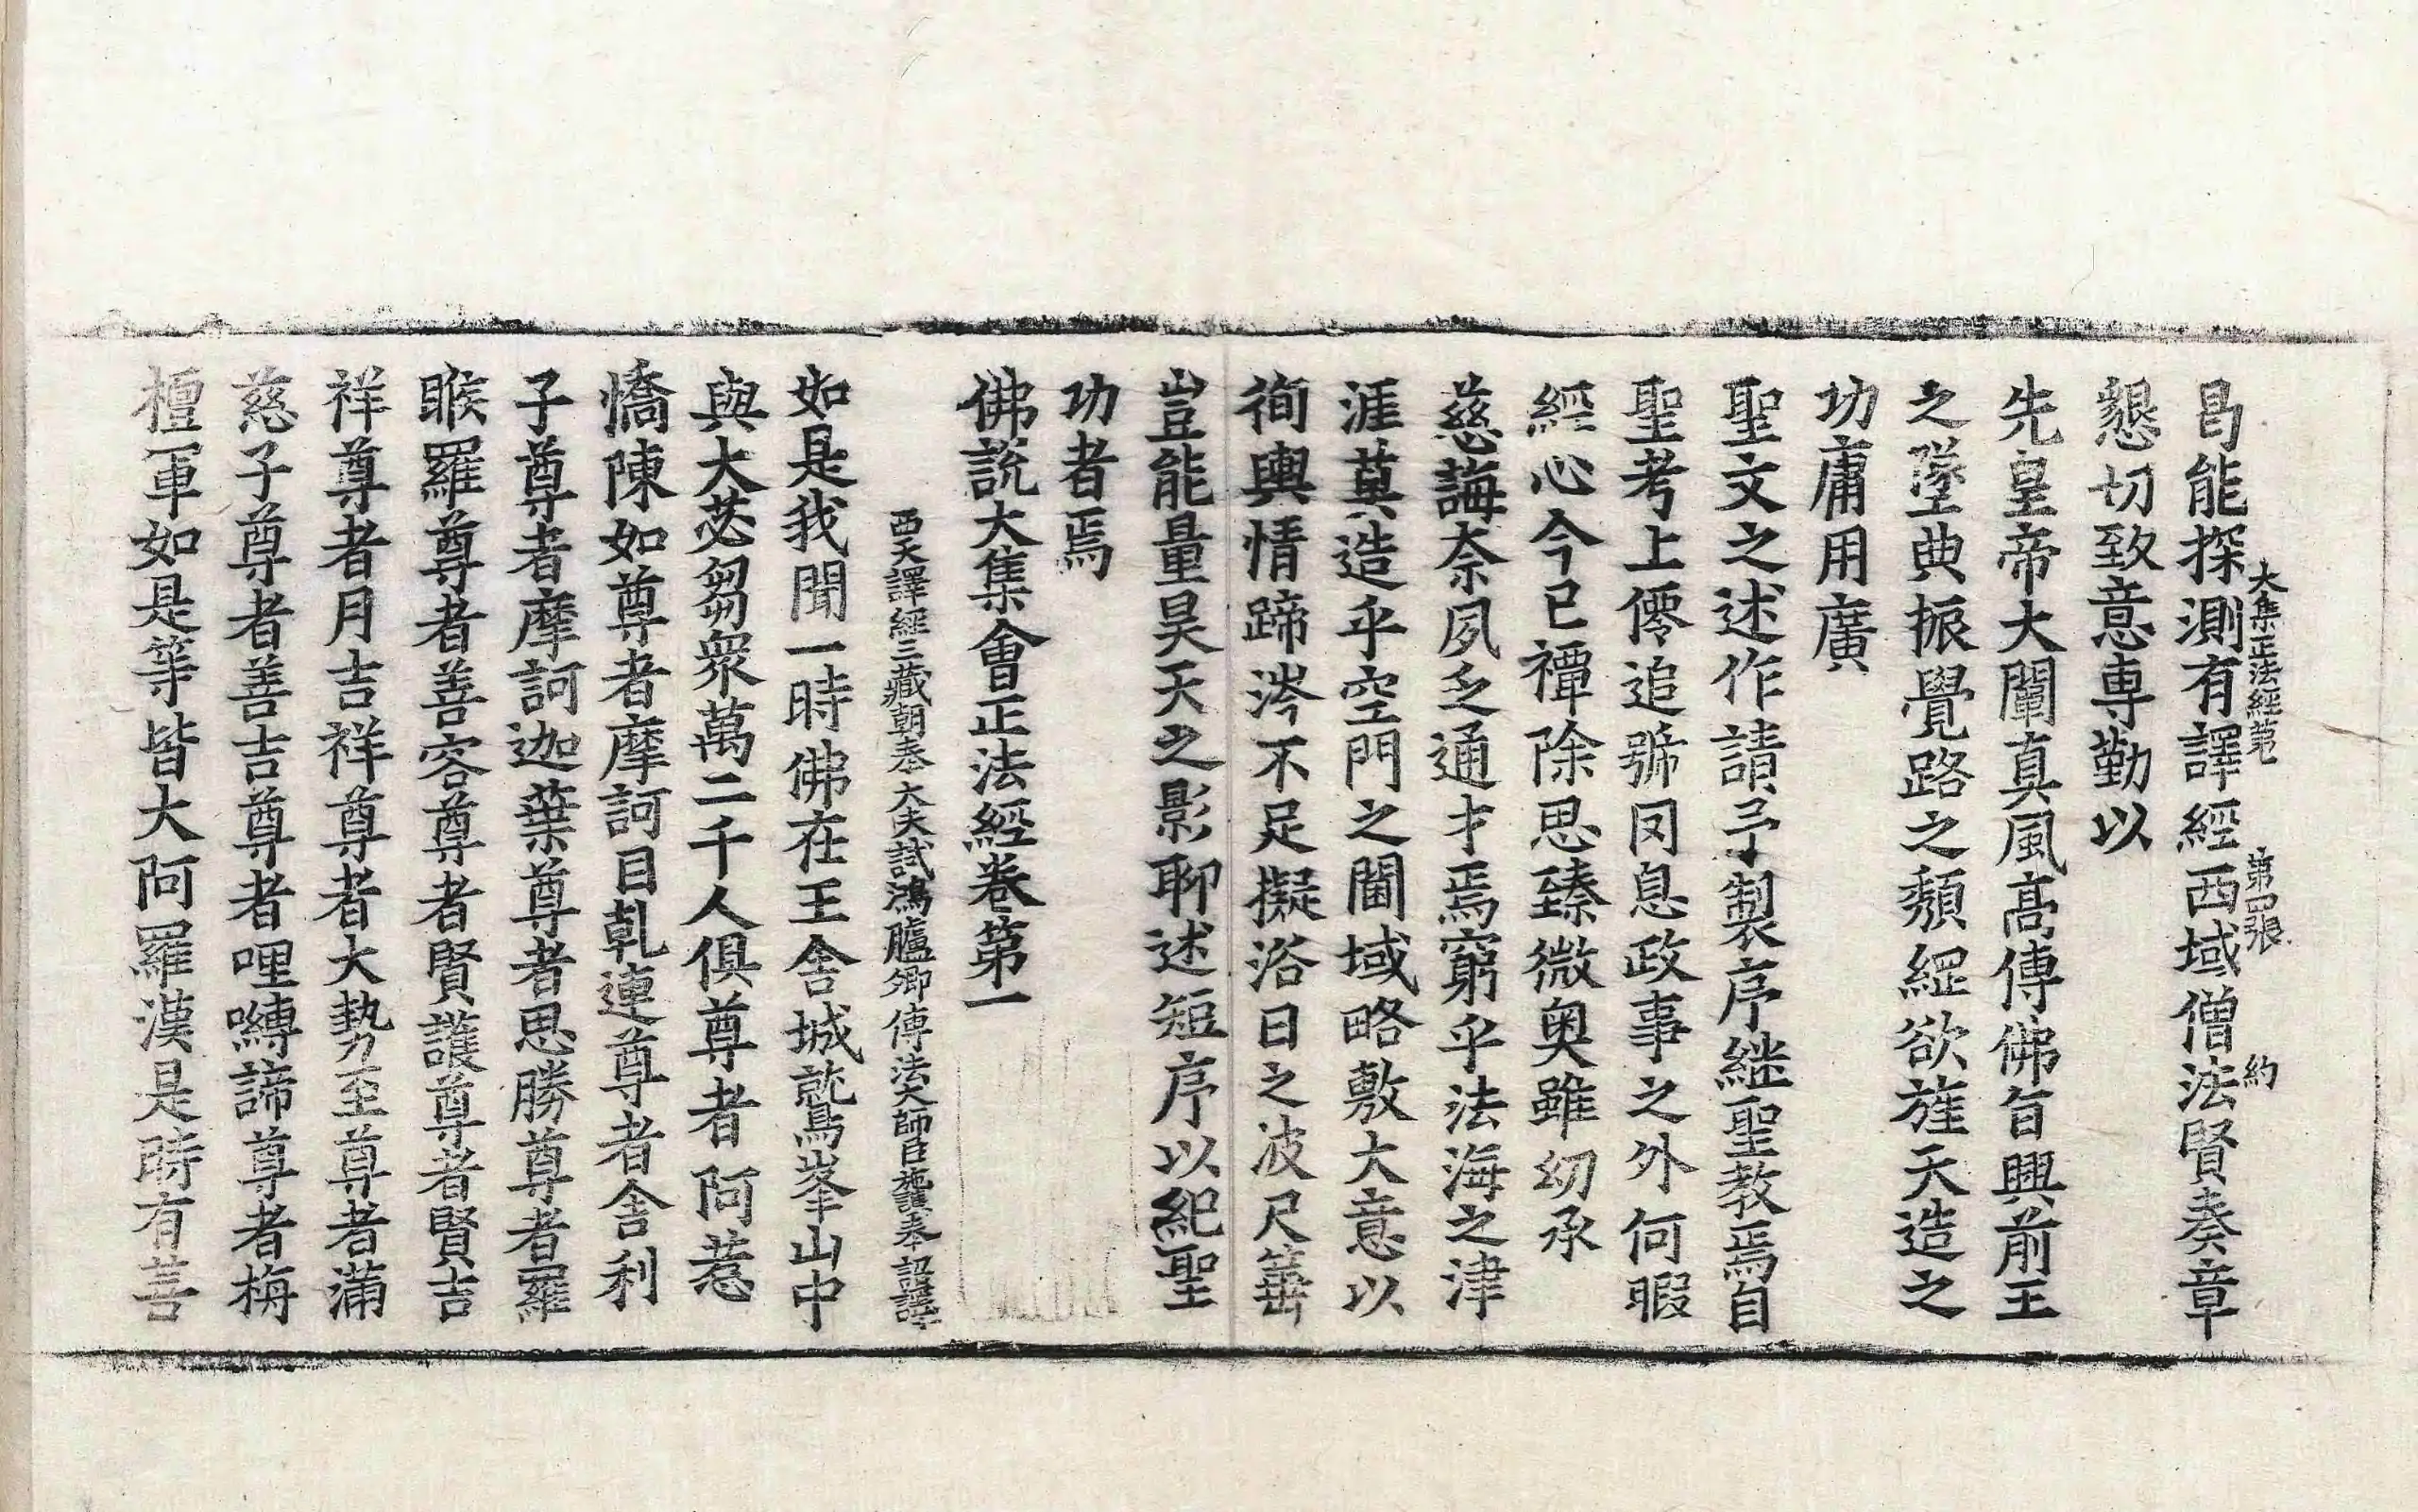 大集正法經第一 第四張 約
曷能探測有譯經西域僧法賢奏章
懇切致意專勤以
先皇帝大闡真風高傳佛旨興前王
之墜典振覺路之頹綱欲旌天造之
功庸用廣
聖文之述作請予製序継聖教焉自
聖考上僊追號罔息政事之外何暇
經心今已禫除思臻微奧雖幼承
慈誨柰夙乏通才焉窮乎法海之津
涯莫造乎空門之閫域略敷大意以
徇輿情蹄涔不足擬浴日之波尺箠
豈能量昊天之影聊述短序以紀聖
功者焉
佛說大集會正法經卷第一
西天譯經三藏朝奉大夫試鴻臚卿傳法大師臣施護奉詔譯
如是我聞一時佛在王舍城鷲峯山中
與大苾芻衆萬二千人俱尊者阿惹
憍陳如尊者摩訶目乹連尊者舍利
子尊者摩訶迦葉尊者思勝尊者羅
睺羅尊者善容尊者賢護尊者賢吉
祥尊者月吉祥尊者大勢至尊者滿
慈子尊者善吉尊者哩嚩諦尊者栴
檀軍如是等皆大阿羅漢是時有菩